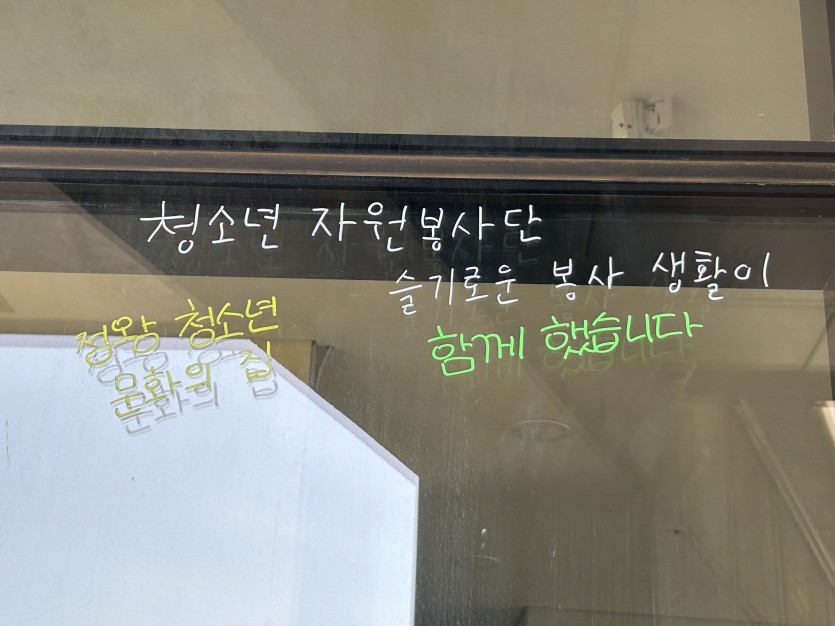 청소년 자원봉사단
슬기로운 봉사 생활이
함께 했습니다
정왕 청소년
문화의 집